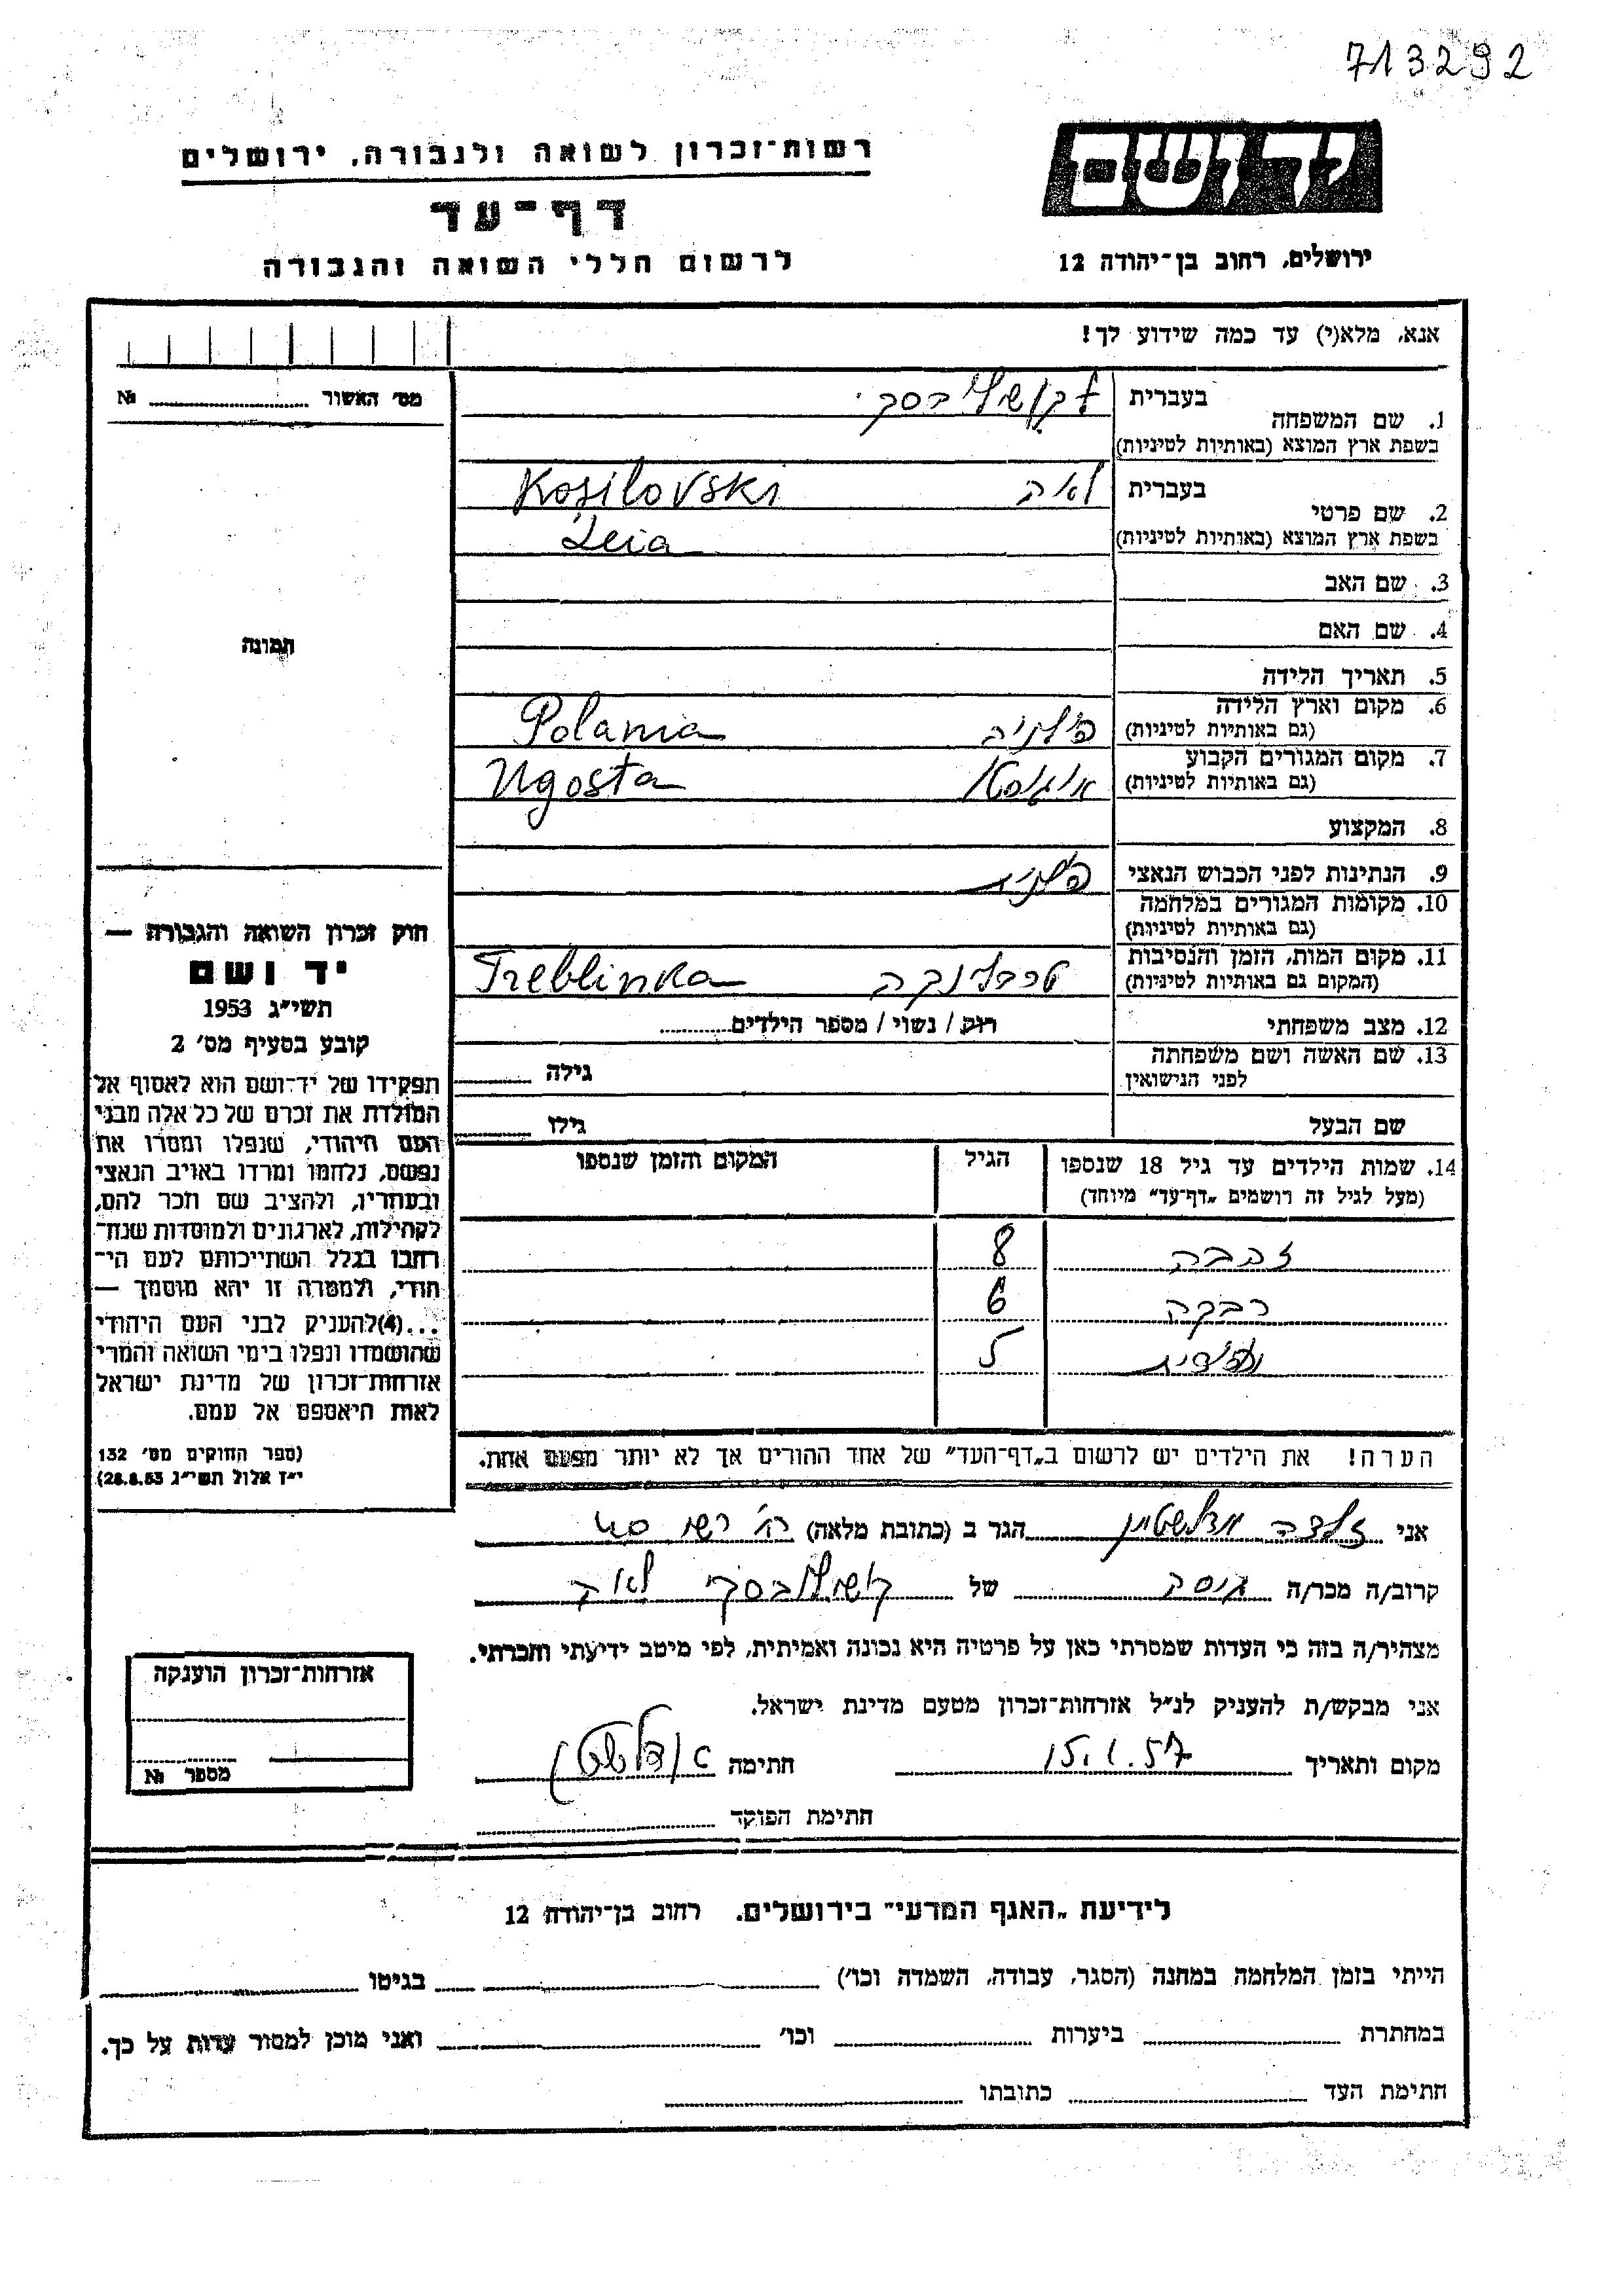 713292
יד ושם
רשות־זכרון לשואה ולגבורה, ירושלים
דף־עד
לרשום חללי השואה והגבורה
ירושלים, רחוב בן־יהודה 12
אנא, מלא(י) עד כמה שידוע לך!
מס׳ האשור № 
1. שם המשפחה
בעברית
בשפת ארץ המוצא (באותיות לטיניות)
Kosilovski
2. שם פרטי
בעברית לאה
בשפת ארץ המוצא (באותיות לטיניות)
Leia
3. שם האב
4. שם האם
5. תאריך הלידה
6. מקום וארץ הלידה
(גם באותיות לטיניות)
פולניה Polania
7. מקום המגורים הקבוע
(גם באותיות לטיניות)
Ugosta
8. המקצוע
9. הנתינות לפני הכבוש הנאצי פולנית
10. מקומות המגורים במלחמה
(גם באותיות לטיניות)
11. מקום המות, הזמן והנסיבות
(המקום גם באותיות לטיניות)
טרבלינקה Treblinka
12. מצב משפחתי רוק / נשוי / מספר הילדים
13. שם האשה ושם משפחתה
לפני הנישואין
גילה
שם הבעל גילו
14. שמות הילדים עד גיל 18 שנספו
(מעל לגיל זה רושמים „דף־עד” מיוחד)
הגיל
המקום והזמן שנספו
8
רבקה 6
5
הערה! את הילדים יש לרשום ב„דף־העד” של אחד ההורים אך לא יותר מפעם אחת.
תמונה
חוק זכרון השואה והגבורה —
יד ושם
תשי״ג 1953
קובע בסעיף מס׳ 2
תפקידו של יד־ושם הוא לאסוף אל
המולדת את זכרם של כל אלה מבני
העם היהודי, שנפלו ומסרו את
נפשם, נלחמו ומרדו באויב הנאצי
ובעוזריו, ולהציב שם וזכר להם,
לקהילות, לארגונים ולמוסדות שנח־
רבו בגלל השתייכותם לעם הי־
הודי, ולמטרה זו יהא מוסמך —
...(4)להעניק לבני העם היהודי
שהושמדו ונפלו בימי השואה והמרי
אזרחות־זכרון של מדינת ישראל
לאות היאספם אל עמם.
(ספר החוקים מס׳ 132
י״ז אלול תשי״ג 28.8.53)
אני זלדה הגר ב (כתובת מלאה)
קרוב/ה מכר/ה גיסה של לאה
מצהיר/ה בזה כי העדות שמסרתי כאן על פרטיה היא נכונה ואמיתית, לפי מיטב ידיעתי והכרתי.
אני מבקש/ת להעניק לנ״ל אזרחות־זכרון מטעם מדינת ישראל.
מקום ותאריך 15.1.57 חתימה
חתימת הפוקד
אזרחות־זכרון הוענקה
מספר №
לידיעת „האגף המדעי” בירושלים. רחוב בן־יהודה 12
הייתי בזמן המלחמה במחנה (הסגר, עבודה, השמדה וכו׳) בגיטו
במחתרת ביערות וכו׳ ואני מוכן למסור עדות על כך.
חתימת העד כתובתו